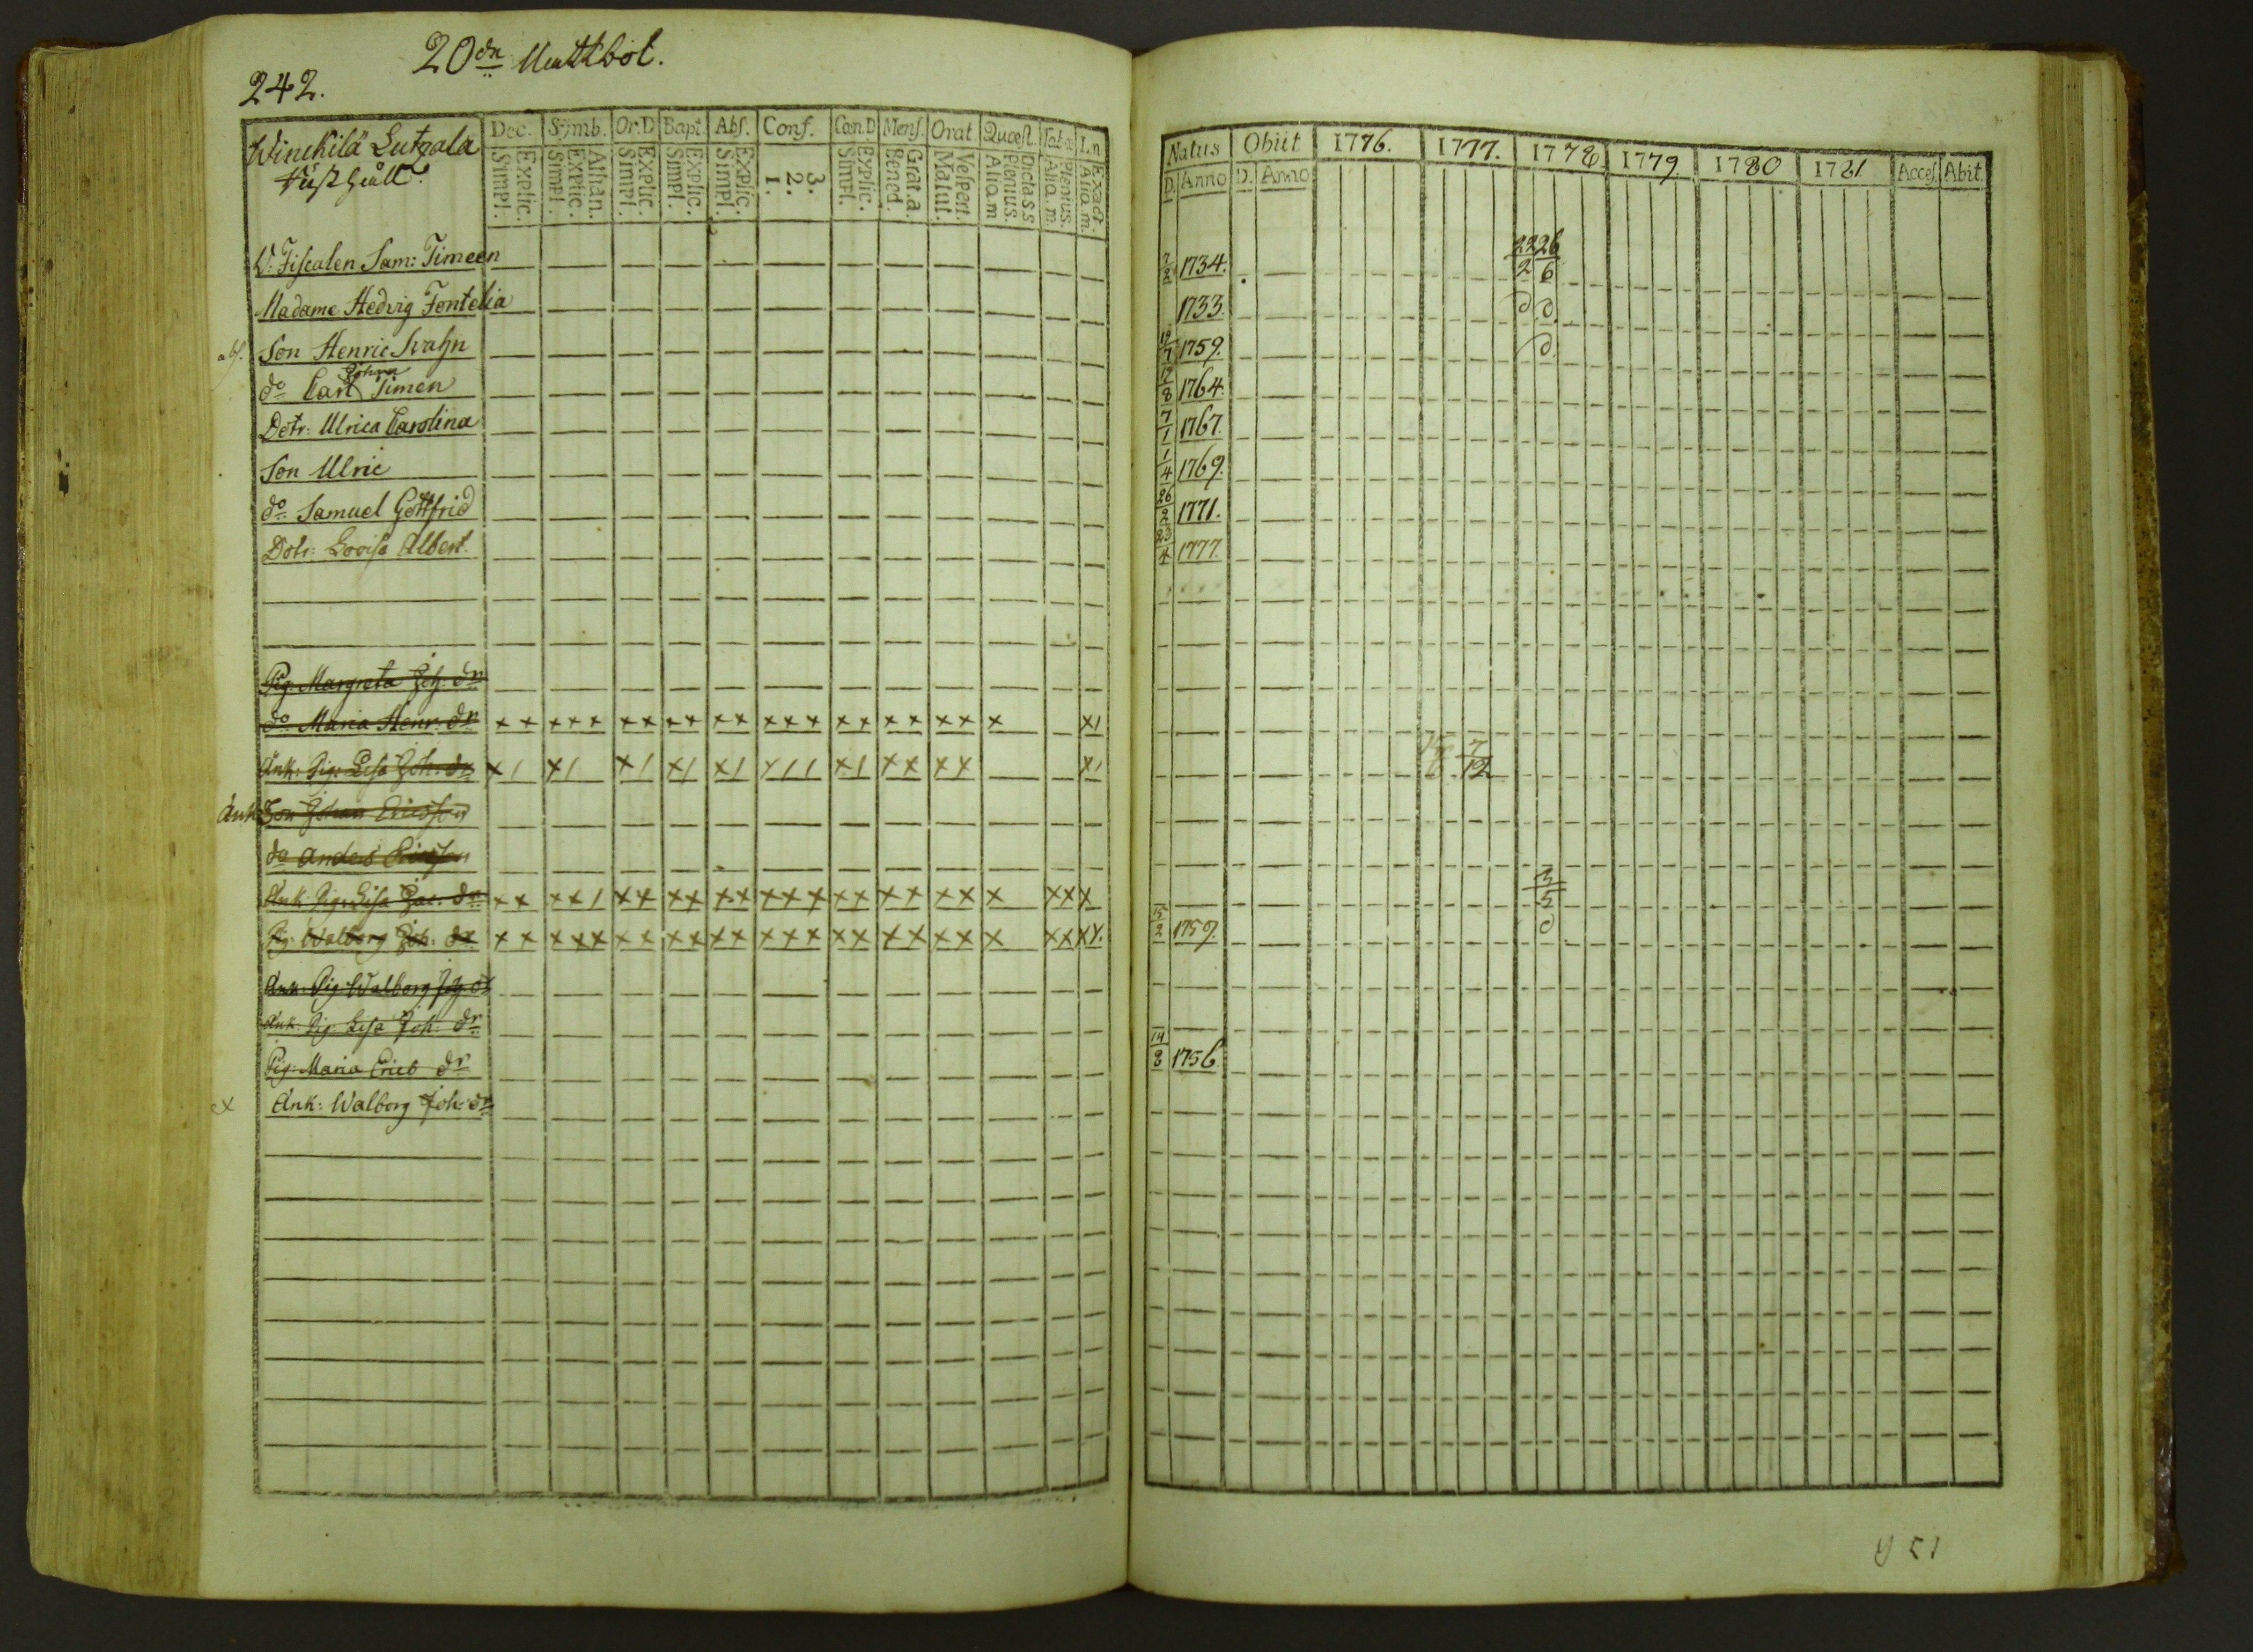 242.
20dn Mattböl.
Winckilä Lutzala
Dec. Symb. Or.D Bapt. Abs. Conf. Cœn.D Mens. Orat. Quæst. Tab. L.n
Simpl. Explic. Simpl. Explic. Athan. Simpl. Explic. Simpl. Explic. Simpl. Explic. 1. 2. 3. Simpl. Explic. Bened. Grat.a. Matut. Vespert. Alia.m Plenius. Dicta s.s Alia.m. Plenius. Alia.m. Exact.
V: Fiscalen Sam: Timeen
Madame Hedvig Fontelia
abs. Son Henric Svahn
do Carl Johan Timen
Dotr: Ulrica Carolina
Son Ulric
do Samuel Gottfrid
Dotr: Lovisa Albert.
Pig: Margreta Joh: dr
do Maria Henr: dr x x x x x x x x x x x x x x x x x x x x x x x 1
Ank: Pig: Lisa Joh: dr x 1 x 1 x 1 x 1 x 1 x 1 1 x 1 x x x x x 1
Ank Son Johan Ericsson
do Anders Ericsson
Ank: Pig: Lisa Jac: dr x x x x 1 x x x x x x x x x x x x x x x x x x x
Pig: Walborg Joh: dr x x x x x x x x x x x x x x x x x x x x x x x x x
Ank: Pig: Walborg Joh: dr
Ank: Pig: Lisa Joh: dr
Pig: Maria Erics dr
x Ank: Walborg Joh: dr
Natus Obiit 1776. 1777. 1778 1779. 1780 1781 Acces. Abit.
D. Anno D. Anno
7/2 1734. 22/2 26/6
1733. d d.
19/7 1759. d.
19/8 1764.
7/1 1767.
1/4 1769.
26/2 1771.
23/4 1777.
7/12
3/5
15/2 1759. d
14/8 1756.